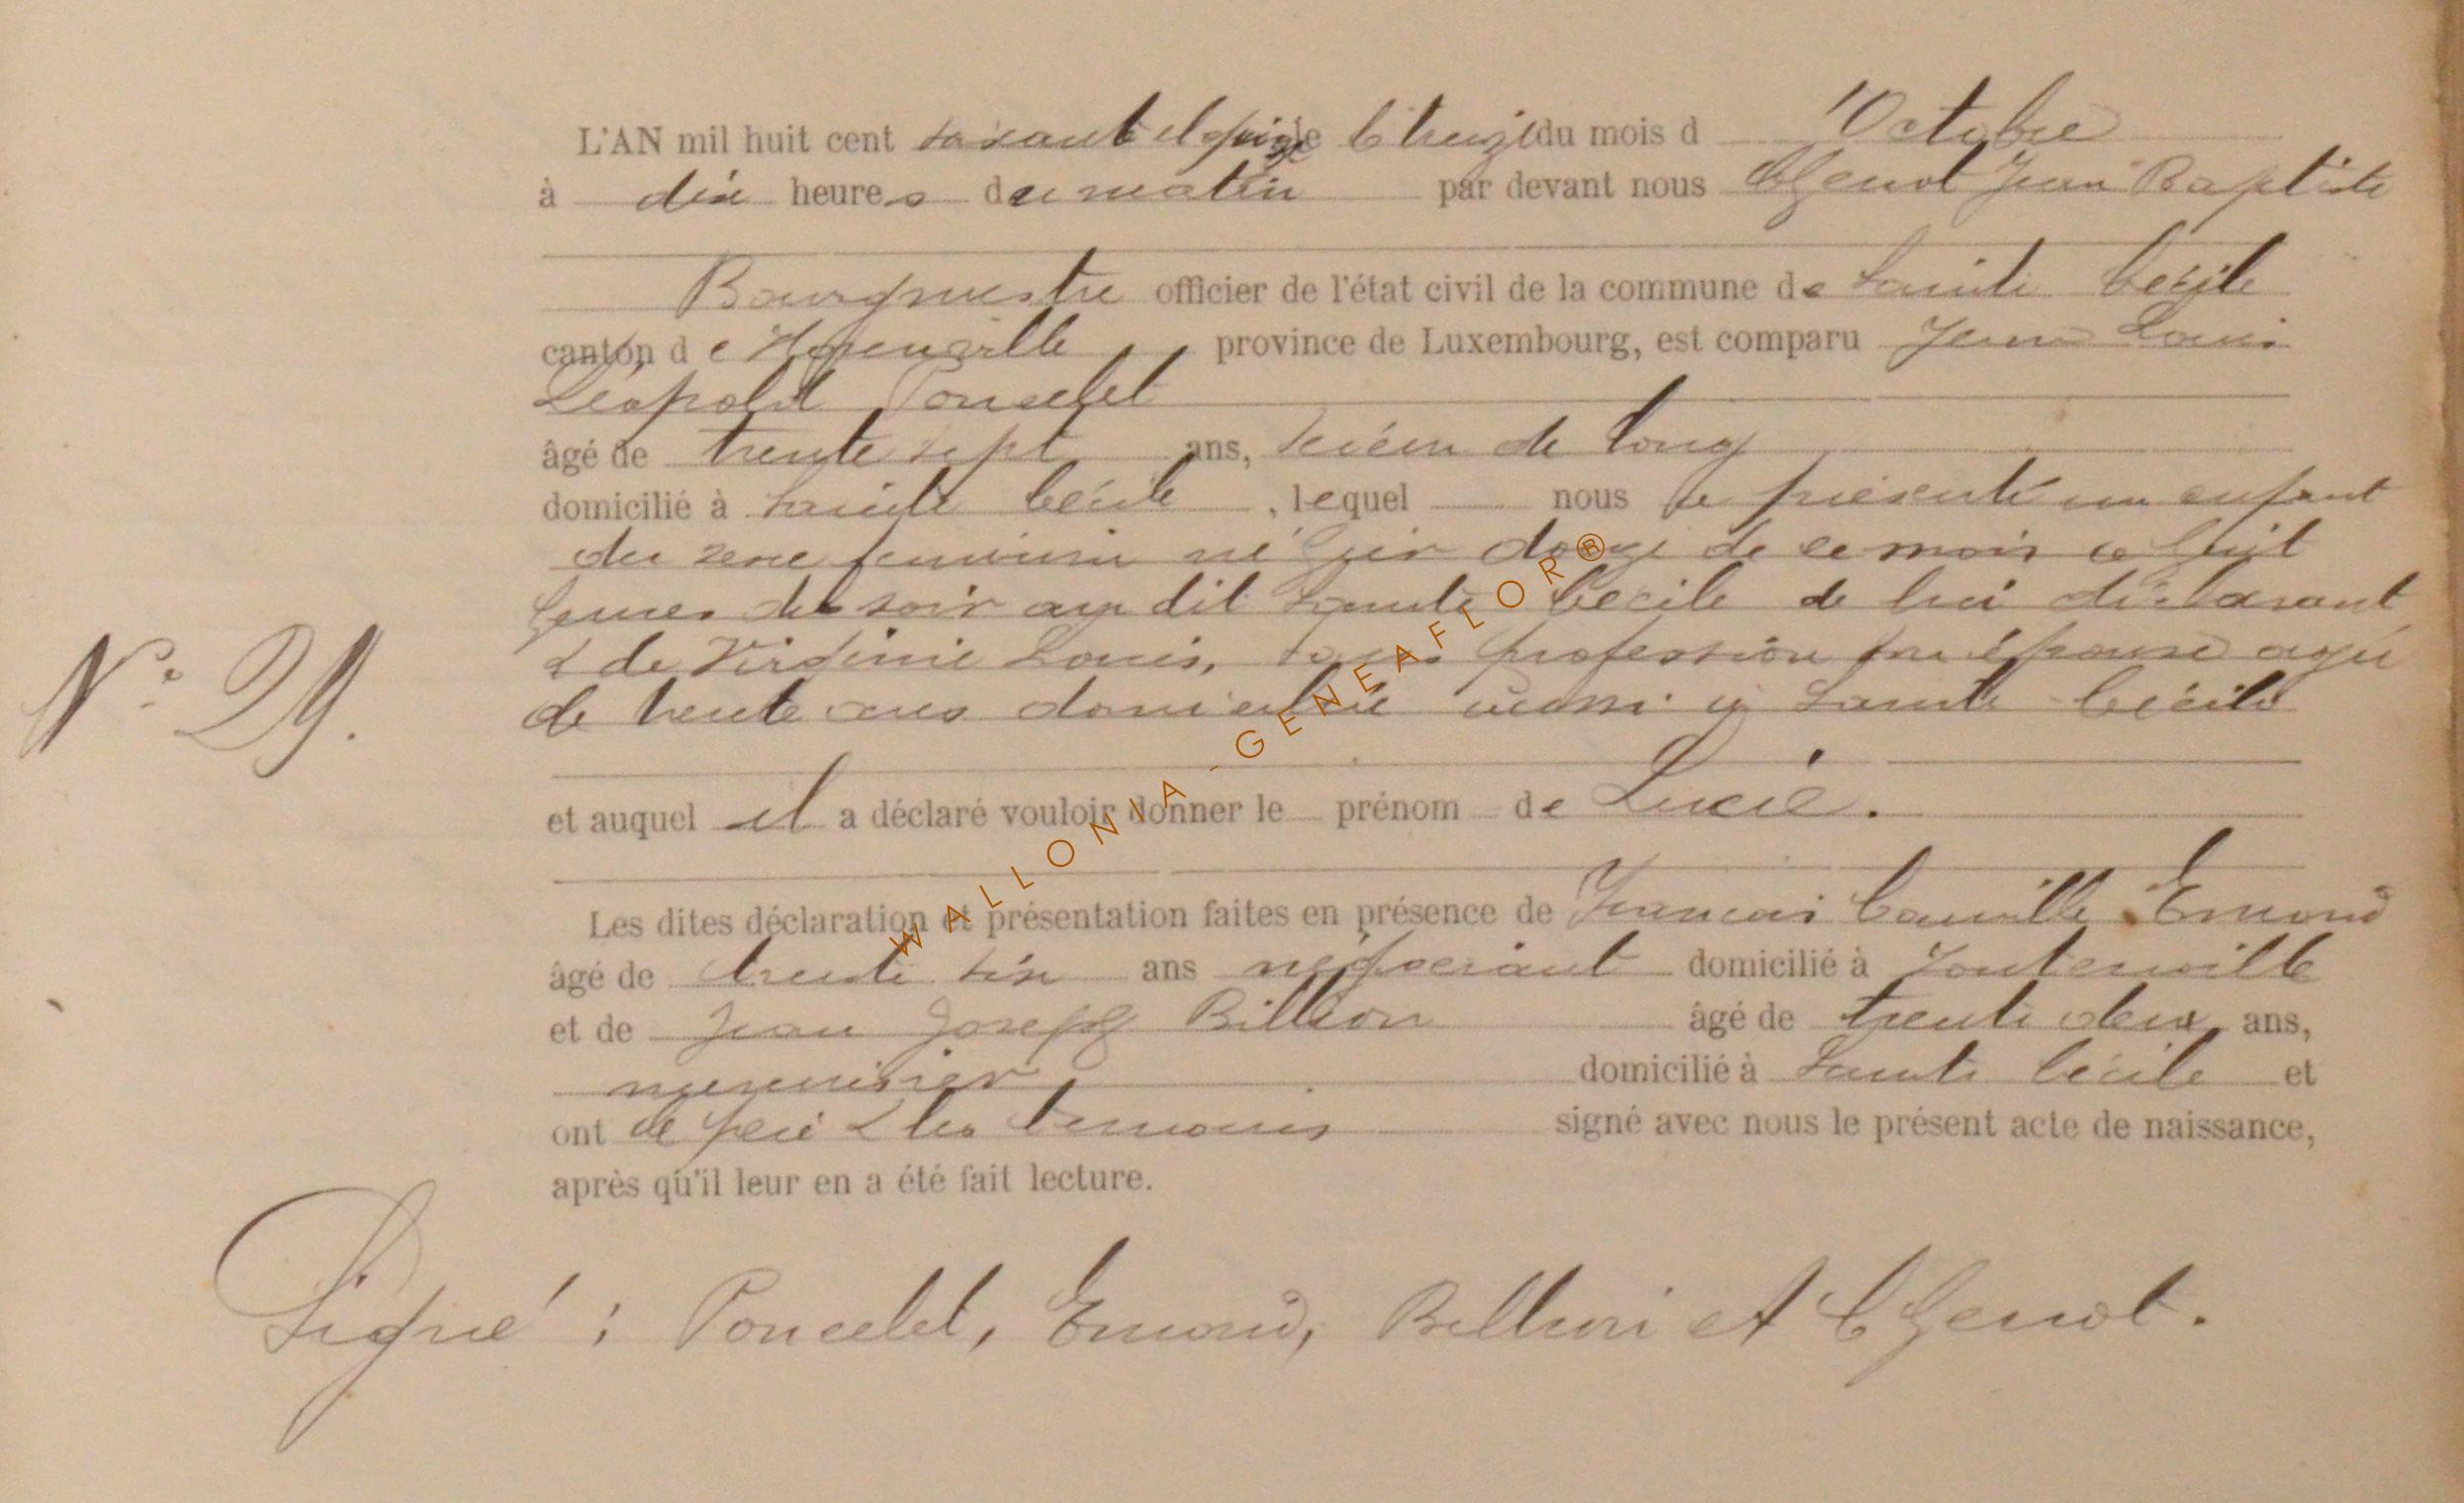 L'AN mil huit cent soixante et quinze le treize du mois d'Octobre
à dix heures du matin par devant nous Thenot Jean Baptiste
Bourgmestre officier de l'état civil de la commune de Sainte Cécile
canton de province de Luxembourg, est comparu Jean Louis
Léopold Poncelet
âgé de trente sept ans, scieur de long
domicilié à Sainte Cécile, lequel nous a présenté un enfant
du sexe féminin né hier douze de ce mois a huit
heures du soir au dit Sainte Cécile de lui déclarant
& de Virginie Louis, sans profession son épouse agée
de trente ans domiciliée aussi à Sainte Cécile
N° 29.
et auquel il a déclaré vouloir donner le prénom de Lucie.
Les dites déclaration et présentation faites en présence de Francois Camille Emond
âgé de trente six ans négociant domicilié à Fontenoille
et de Jean Joseph Billion âgé de trente deux ans,
menuisier domicilié à Sainte Cécile et
ont le père & les temoins signé avec nous le présent acte de naissance,
après qu'il leur en a été fait lecture.
Signé : Poncelet, Emond, et Thenot.
WALLONIA - GENEAFLOR®